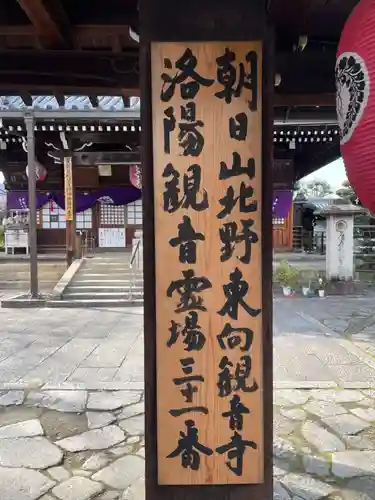 朝日山北野東向観音寺
洛陽観音霊場三十一番